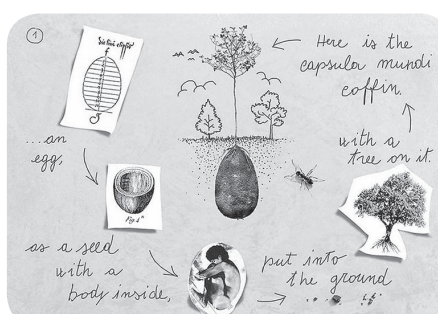 1
Here is the
capsula mundi
coffin.
...an
egg,
with a
tree on it.
Fig. 1ª
as a seed
with a
body inside,
put into
the ground